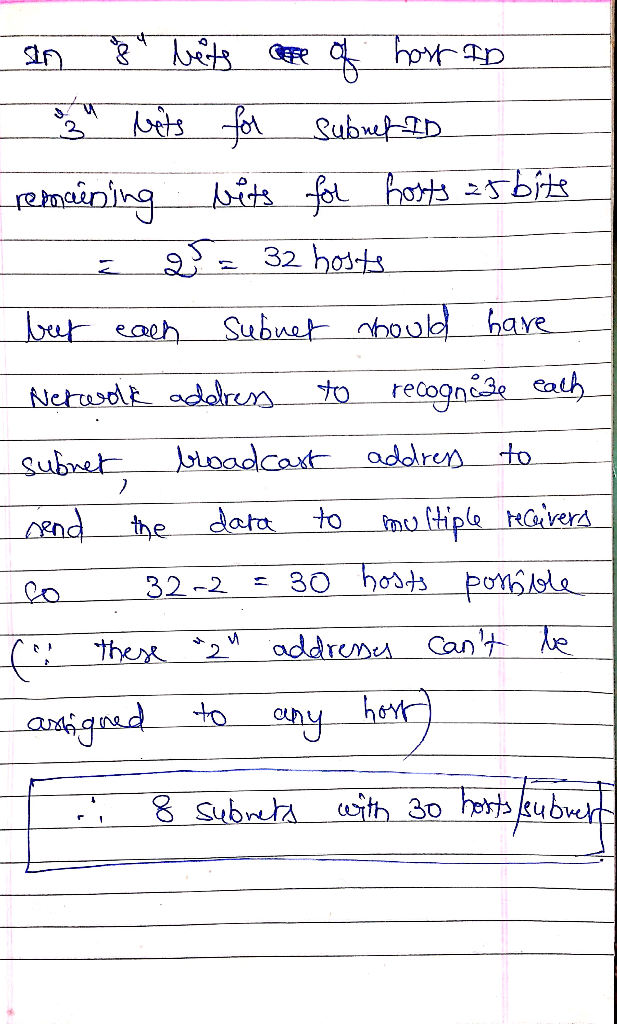 In "8" bits of host ID
"3" bits for Subnet-ID
remaining bits for hosts = 5 bits
= 2^5 = 32 hosts
but each Subnet should have
Network address to recognize each
subnet, broadcast address to
send the data to multiple receivers
so 32-2 = 30 hosts possible
(∵ these "2" addresses can't be
assigned to any host)
∴ 8 subnets with 30 hosts/subnet